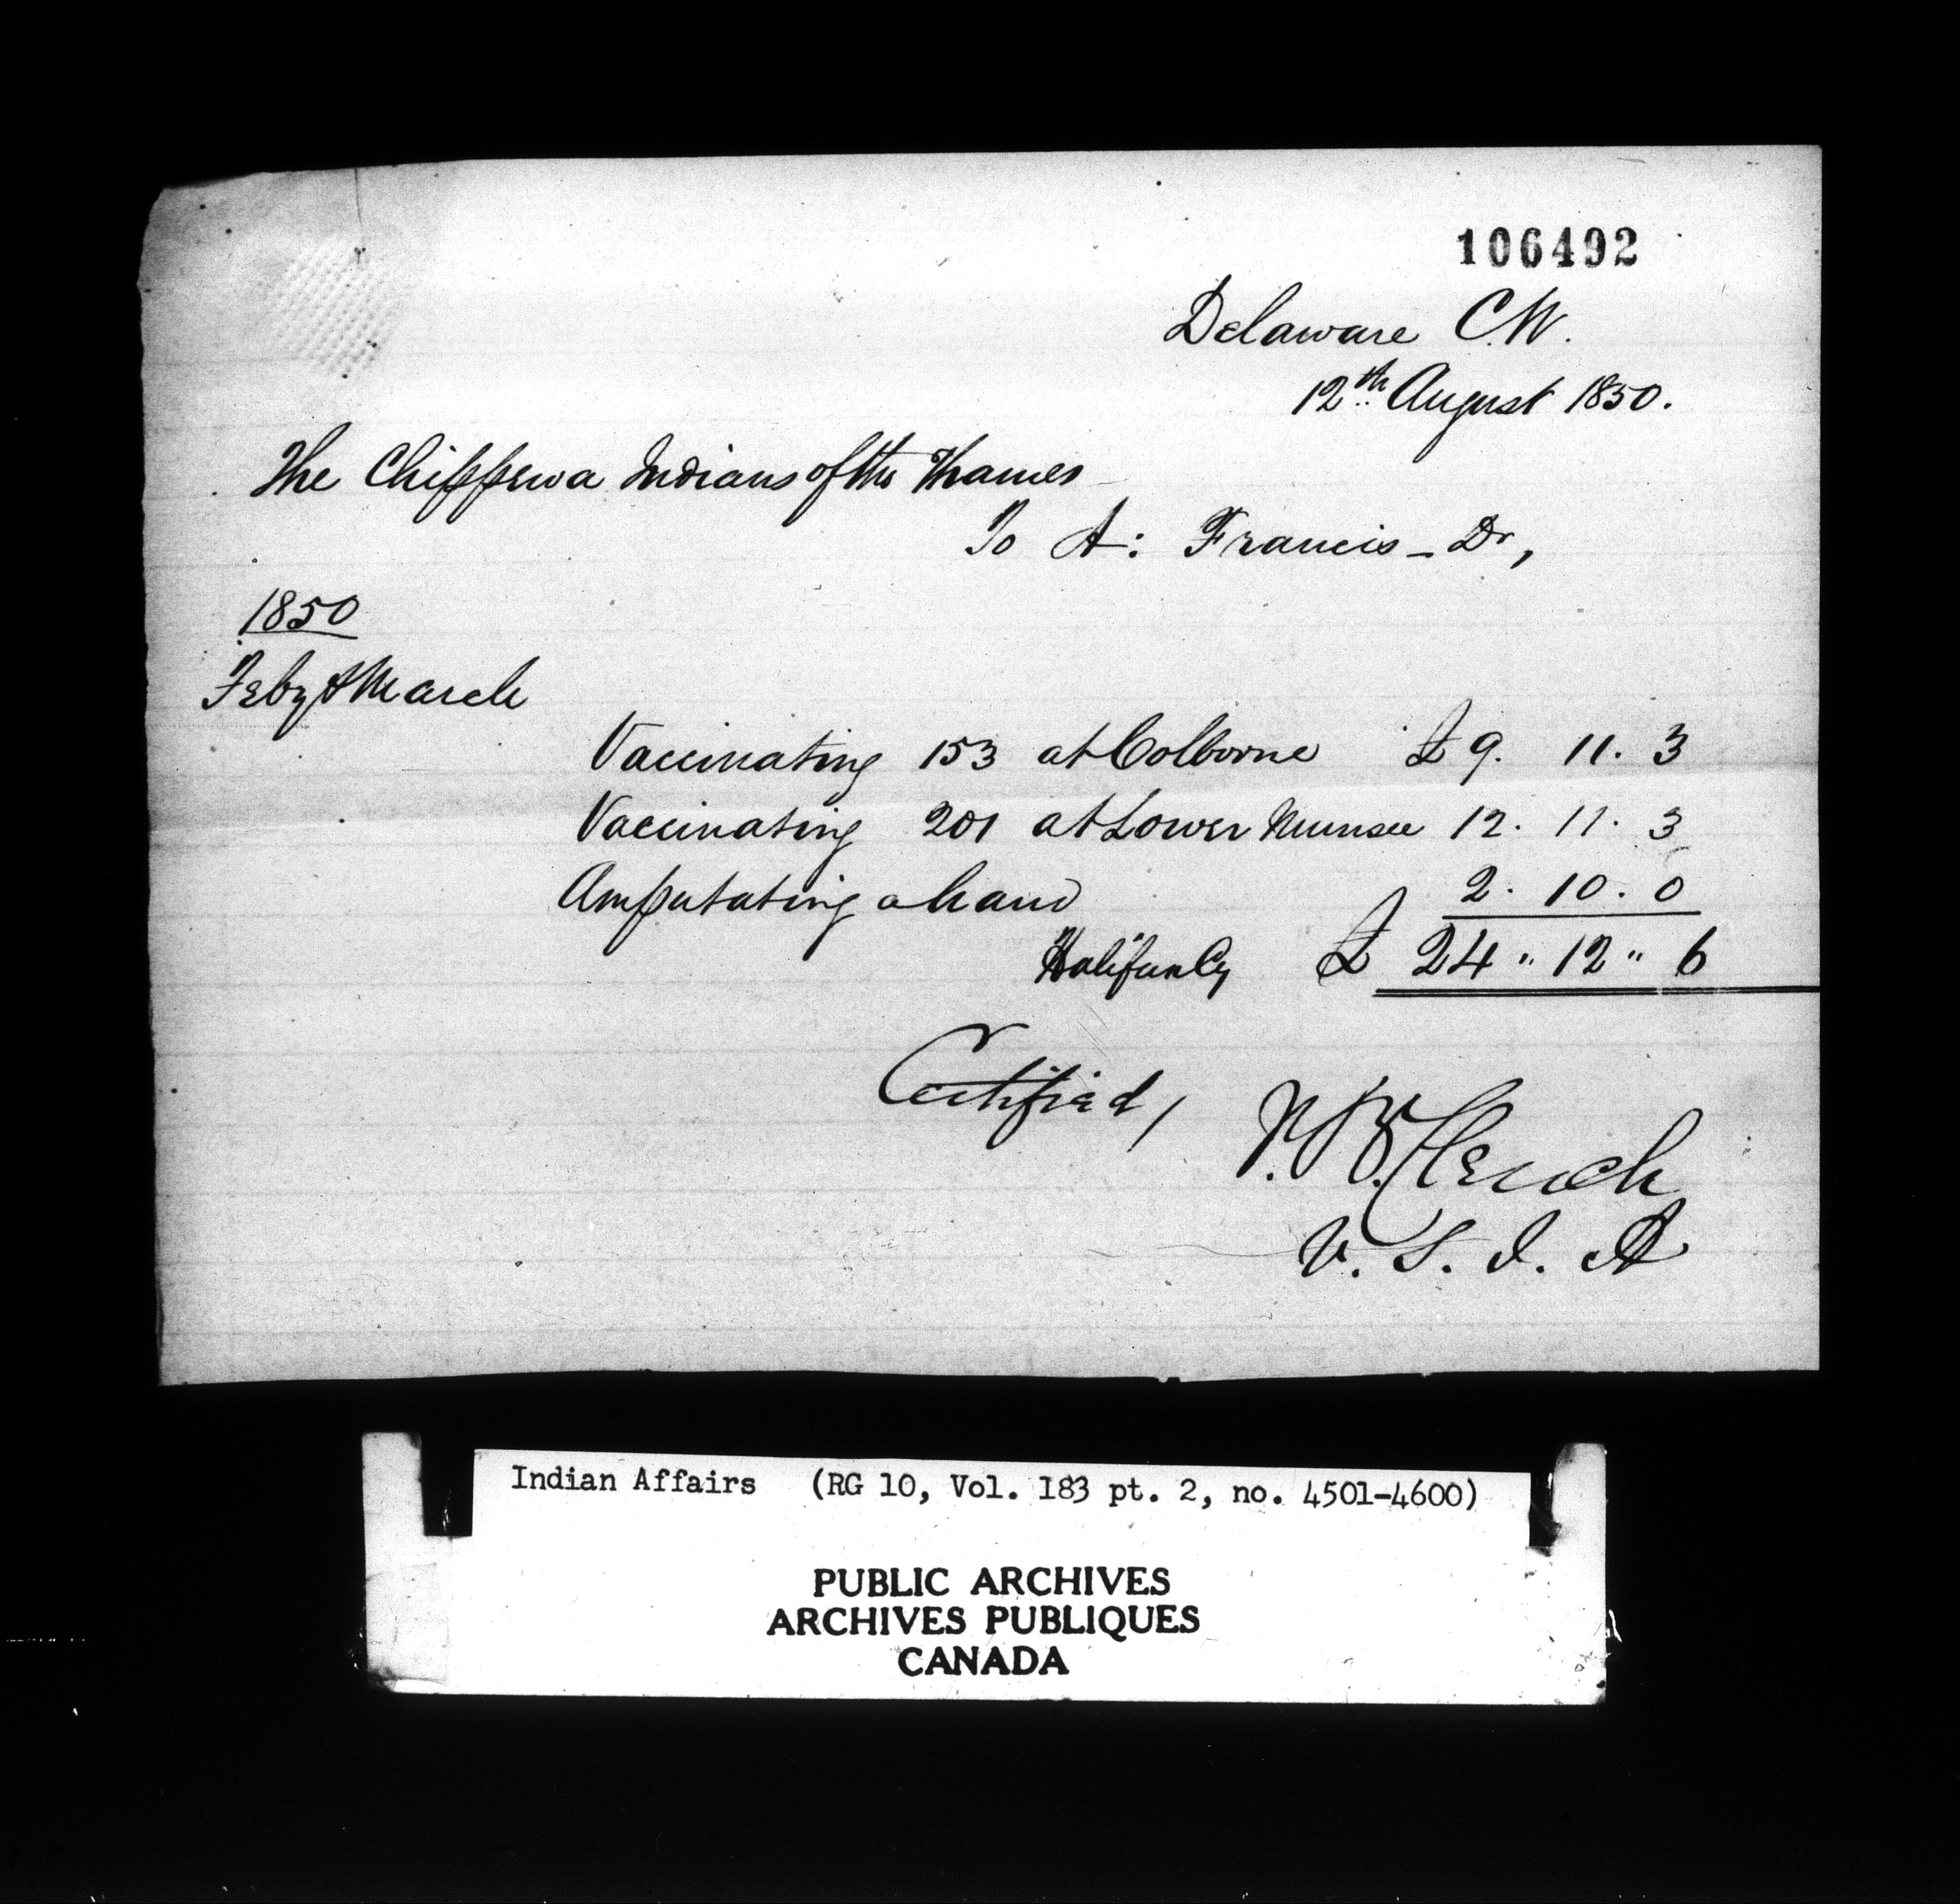 106492
Delaware C.W.
12th August 1850.
The Chippewa Indians of the Thames
To A: Francis - Dr,
1850
Feby & March
Vaccinating 153 at Colborne £ 9. 11. 3
Vaccinating 201 at Lower Munsee 12. 11. 3
Amputating a hand 2. 10. 0
Halifax Cy £ 24 " 12 " 6
Certified,
J. B. Clench
V. S. I. A
Indian Affairs (RG 10, Vol. 183 pt. 2, no. 4501-4600)
PUBLIC ARCHIVES
ARCHIVES PUBLIQUES
CANADA